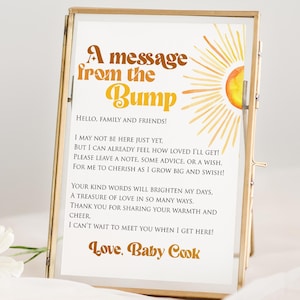 A message
from the
Bump
Hello, family and friends!
I may not be here just yet,
But I can already feel how loved I'll get!
Please leave a note, some advice, or a wish.
For me to cherish as I grow big and swish!
Your kind words will brighten my days,
A treasure of love in so many ways.
Thank you for sharing your warmth and
cheer.
I can't wait to meet you when I get here!
Love, Baby Cook